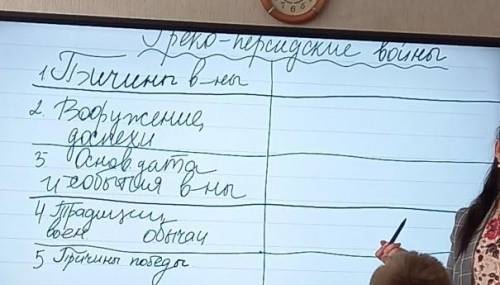 Греко-персидские войны
1 Пичины в-ны
2. Вооружение,
доспехи
3 Основ дата
и события в-ны
4 Традиции
воен обычаи
5 Причины победы